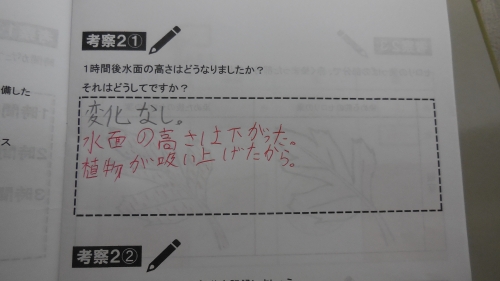 考察2①
1時間後水面の高さはどうなりましたか？
それはどうしてですか？
変化なし。
水面の高さは下がった。
植物が吸い上げたから。
考察2②
備した
ス